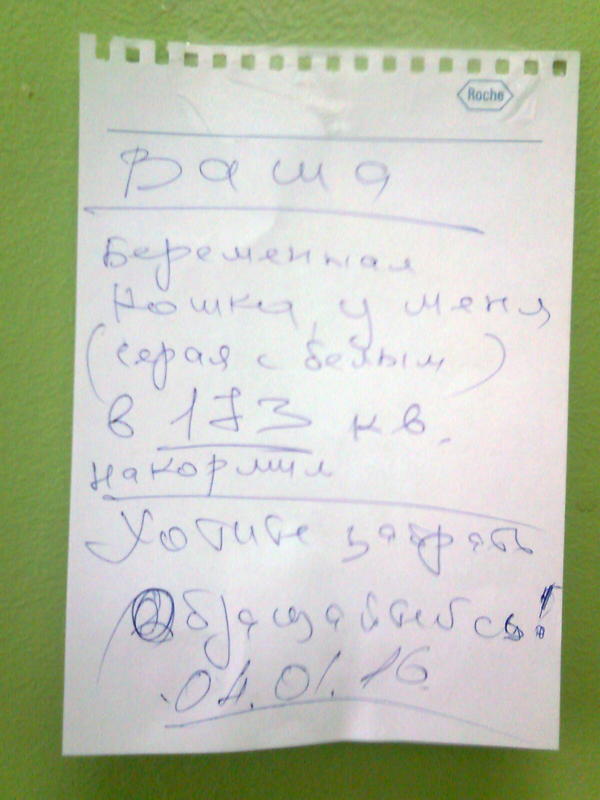 Roche
Ваша
беременная
кошка, у меня
(серая с белым)
в 173 кв.
накормил
Хотите забрать
Обращайтесь!
04.01.16